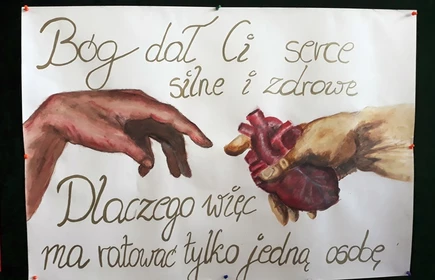 Bóg dał Ci serce
silne i zdrowe
Dlaczego więc
ma ratować tylko jedną osobę